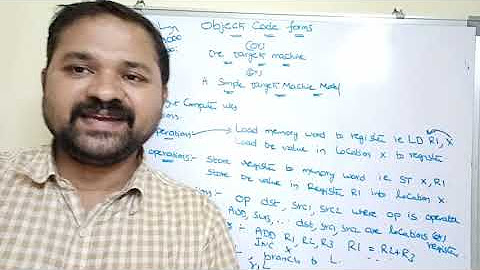 Object Code forms
(or)
The target machine
(or)
A Simple Target Machine Model
Computer uses
operation:- Load memory word to register ie LD R1, X
Load the value in Location X to register
operations:- Store register to memory word ie ST X, R1
Store the value in Register R1 into location X
OP dst, src1, src2 where op is operator
ADD, SUB, ... dst, src1, src2 are locations (or) register
ADD R1, R2, R3 R1 = R2+R3
INC X
branch to L